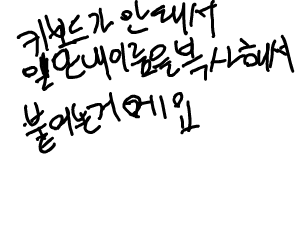 키보드가 안돼서
일단 내이름을 복사해서
붙여논거에임